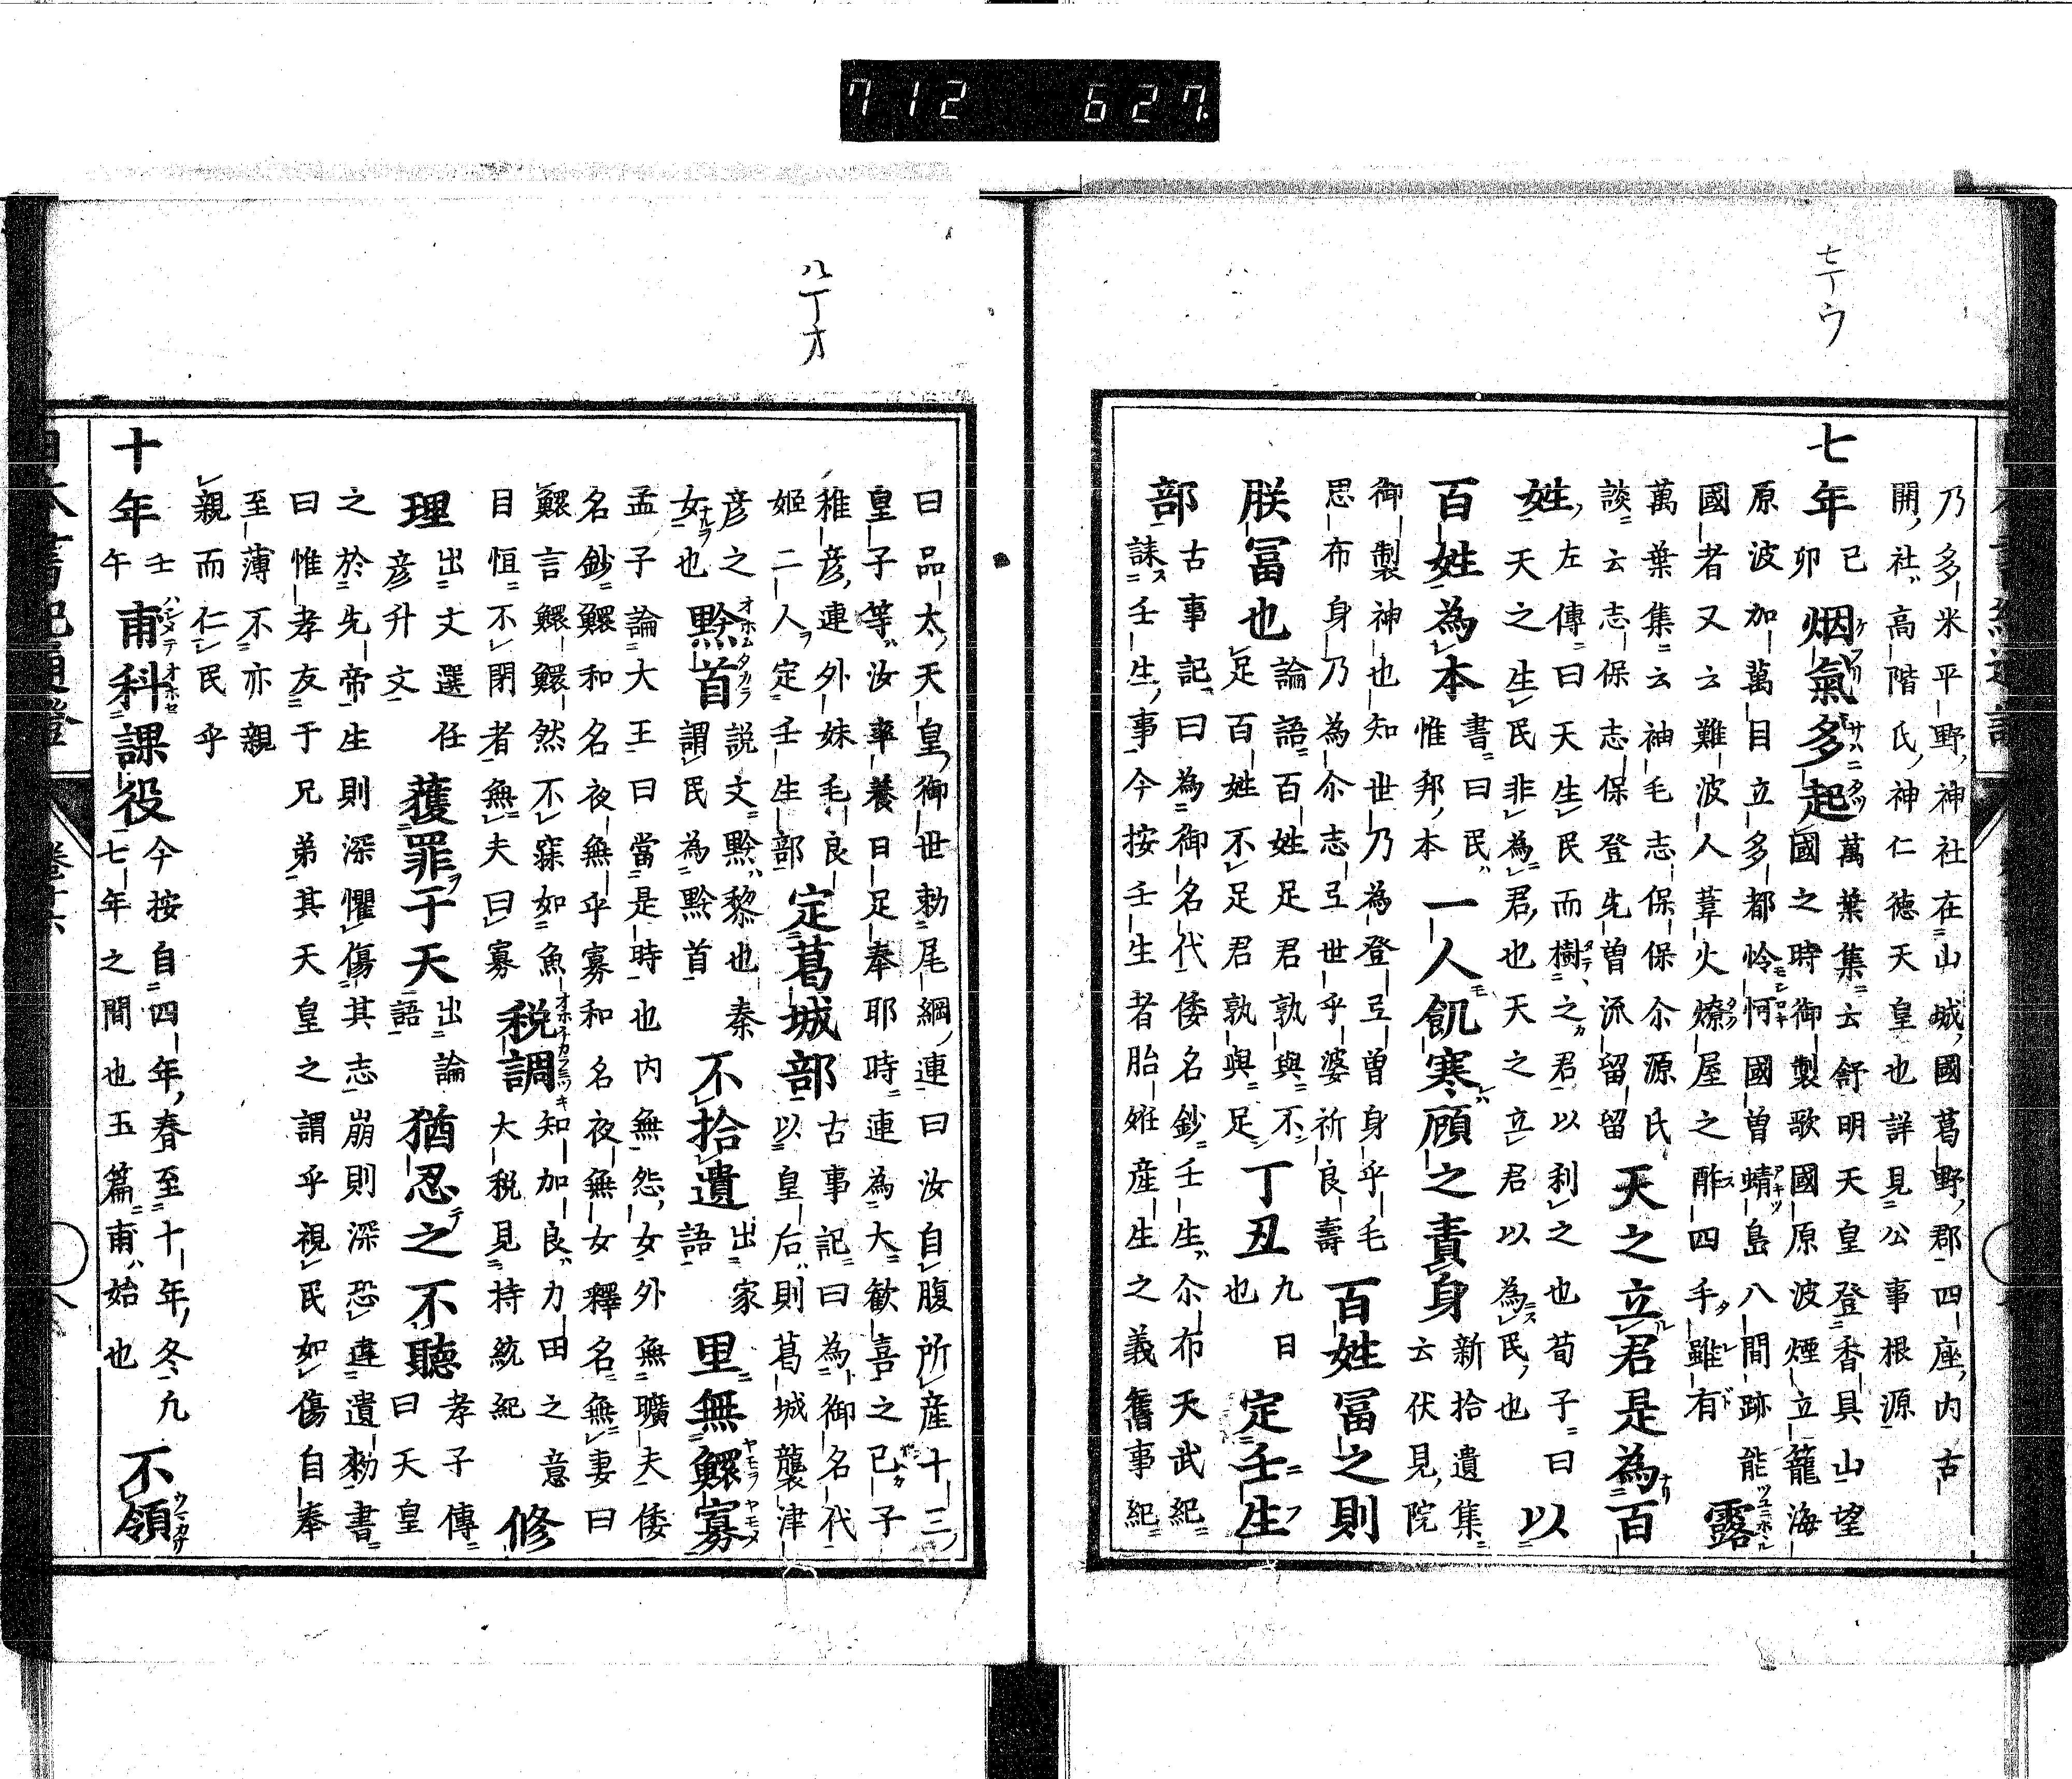 712 627.
七丁ウ
乃多米平野神社在山城國葛野郡四座内古
開社高階氏神仁徳天皇也詳見公事根源
七年己卯 烟氣多起 萬葉集云舒明天皇登香具山望國之時御製歌國原波煙立籠海
原波加萬目立多都怜怜國曽蜻島八間跡能
國者又云難波人葦火燎屋之酢四手雖有 露
萬葉集云袖毛志保保尓源氏
談云志保志保登先曽流留留 天之立君是為百
姓 左傳曰天生民而樹之君以利之也荀子曰天之生民非為君也天之立君以為民也 以
百姓為本 書曰民惟邦本 一人飢寒顧之責身 新拾遺集云伏見院
御製神也知世乃為登弖曽身乎毛
思布身乃為尓志弖世乎婆祈良壽 百姓冨之則
朕冨也 論語百姓足君孰與不足百姓不足君孰與足 丁丑 九日也 定壬生
部 古事記曰為御名代倭名鈔壬生尓布天武紀
誄壬生事今按壬生者胎姙産生之義舊事紀
八丁オ
曰品太天皇御世勅尾綱連曰汝自腹所産十三
皇子等汝率養日足奉耶時連為大歓喜之已子
稚彦連外妹毛良古事記曰為御名代
姫二人定壬生部 定葛城部 以皇后則葛城襲津
彦之女也 黔首 説文黔黎也秦謂民為黔首 不拾遺 出家語 里無鰥寡
孟子論大王曰當是時也内無怨女外無曠夫倭
名鈔鰥和名夜無乎寡和名夜無女釋名無妻曰
鰥言鰥鰥然不寐如魚
目恒不閉者無夫曰寡 税調 知加良力田之意大税見持統紀 修
理 出文選任彦升文 獲罪于天 出論語 猶忍之不聽 孝子傳曰天皇
之於先帝生則深懼傷其志崩則深恐違遺勅書
曰惟孝友于兄弟其天皇之謂乎視民如傷自奉
至薄不亦親
親而仁民乎
十年壬午 甫科課役 今按自四年春至十年冬九七年之間也玉篇甫始也 不領